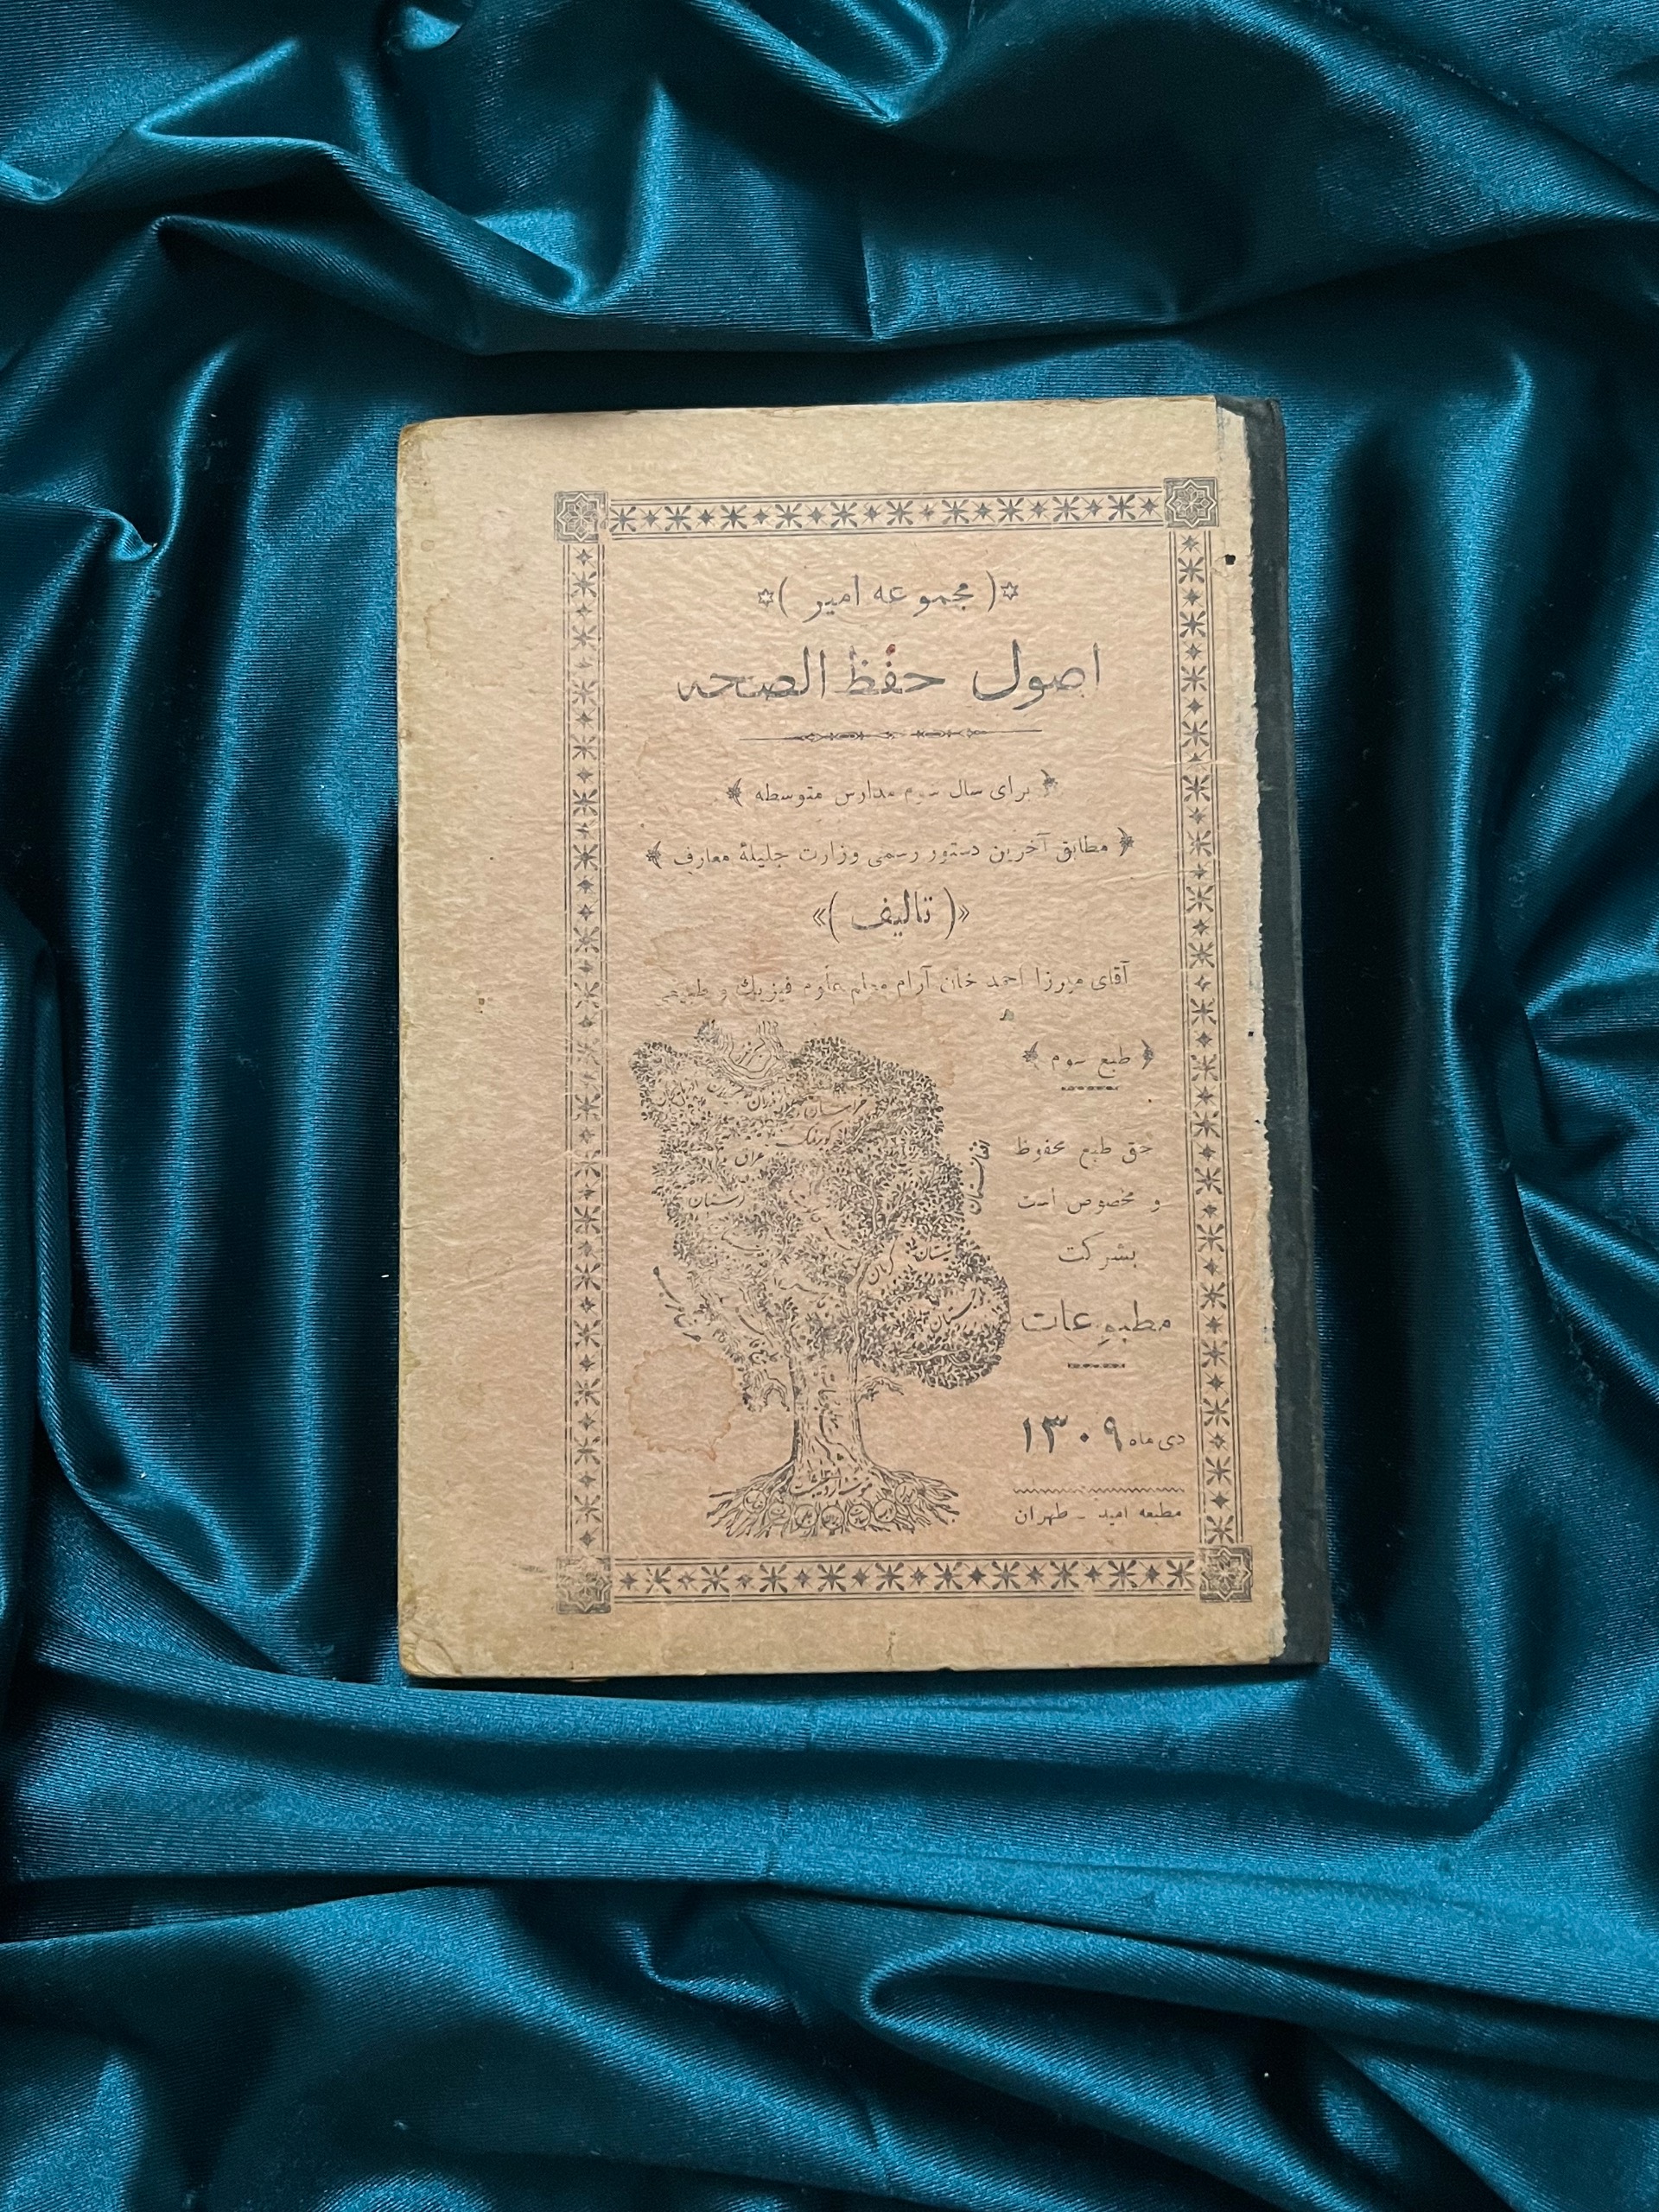 ( مجموعه امیر )
اصول حفظ الصحه
برای سال سوم مدارس متوسطه
مطابق آخرین دستور رسمی وزارت جلیلهٔ معارف
«( تالیف )»
آقای میرزا احمد خان آرام معلم علوم فیزیك و طبیعی
طبع سوم
حق طبع محفوظ
و مخصوص است
بشرکت
مطبوعات
دی ماه ۱۳۰۹
مطبعه امید - طهران
خراسان
عراق
افغانستان
کرمان